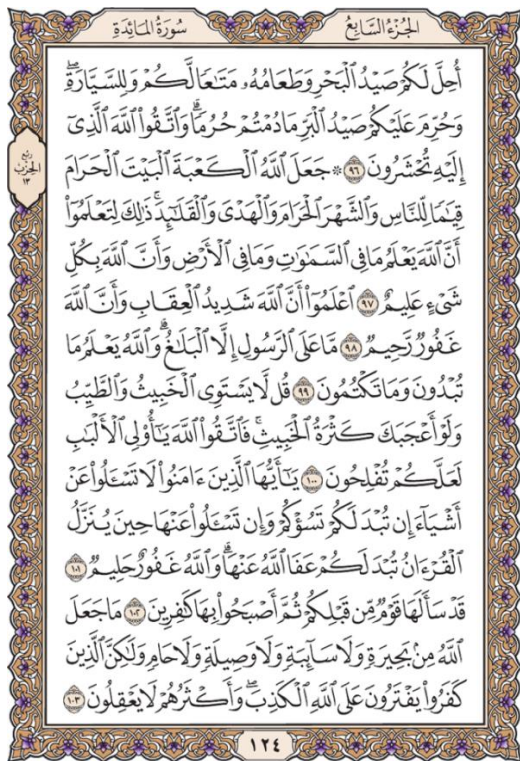 الجُزْءُ السَّابِعُ
سُورَةُ المَائِدَةِ
أُحِلَّ لَكُمْ صَيْدُ ٱلْبَحْرِ وَطَعَامُهُۥ مَتَـٰعًا لَّكُمْ وَلِلسَّيَّارَةِۖ
وَحُرِّمَ عَلَيْكُمْ صَيْدُ ٱلْبَرِّ مَا دُمْتُمْ حُرُمًاۗ وَٱتَّقُوا۟ ٱللَّهَ ٱلَّذِىٓ
إِلَيْهِ تُحْشَرُونَ ٩٦ ۞ جَعَلَ ٱللَّهُ ٱلْكَعْبَةَ ٱلْبَيْتَ ٱلْحَرَامَ
قِيَـٰمًا لِّلنَّاسِ وَٱلشَّهْرَ ٱلْحَرَامَ وَٱلْهَدْىَ وَٱلْقَلَـٰٓئِدَۚ ذَٰلِكَ لِتَعْلَمُوٓا۟
أَنَّ ٱللَّهَ يَعْلَمُ مَا فِى ٱلسَّمَـٰوَٰتِ وَمَا فِى ٱلْأَرْضِ وَأَنَّ ٱللَّهَ بِكُلِّ
شَىْءٍ عَلِيمٌ ٩٧ ٱعْلَمُوٓا۟ أَنَّ ٱللَّهَ شَدِيدُ ٱلْعِقَابِ وَأَنَّ ٱللَّهَ
غَفُورٌ رَّحِيمٌ ٩٨ مَّا عَلَى ٱلرَّسُولِ إِلَّا ٱلْبَلَـٰغُۗ وَٱللَّهُ يَعْلَمُ مَا
تُبْدُونَ وَمَا تَكْتُمُونَ ٩٩ قُل لَّا يَسْتَوِى ٱلْخَبِيثُ وَٱلطَّيِّبُ
وَلَوْ أَعْجَبَكَ كَثْرَةُ ٱلْخَبِيثِۚ فَٱتَّقُوا۟ ٱللَّهَ يَـٰٓأُو۟لِى ٱلْأَلْبَـٰبِ
لَعَلَّكُمْ تُفْلِحُونَ ١٠٠ يَـٰٓأَيُّهَا ٱلَّذِينَ ءَامَنُوا۟ لَا تَسْـَٔلُوا۟ عَنْ
أَشْيَآءَ إِن تُبْدَ لَكُمْ تَسُؤْكُمْ وَإِن تَسْـَٔلُوا۟ عَنْهَا حِينَ يُنَزَّلُ
ٱلْقُرْءَانُ تُبْدَ لَكُمْ عَفَا ٱللَّهُ عَنْهَاۗ وَٱللَّهُ غَفُورٌ حَلِيمٌ ١٠١
قَدْ سَأَلَهَا قَوْمٌ مِّن قَبْلِكُمْ ثُمَّ أَصْبَحُوا۟ بِهَا كَـٰفِرِينَ ١٠٢ مَا جَعَلَ
ٱللَّهُ مِنۢ بَحِيرَةٍ وَلَا سَآئِبَةٍ وَلَا وَصِيلَةٍ وَلَا حَامٍۙ وَلَـٰكِنَّ ٱلَّذِينَ
كَفَرُوا۟ يَفْتَرُونَ عَلَى ٱللَّهِ ٱلْكَذِبَۖ وَأَكْثَرُهُمْ لَا يَعْقِلُونَ ١٠٣
ربع
الحزب
١٣
١٢٤